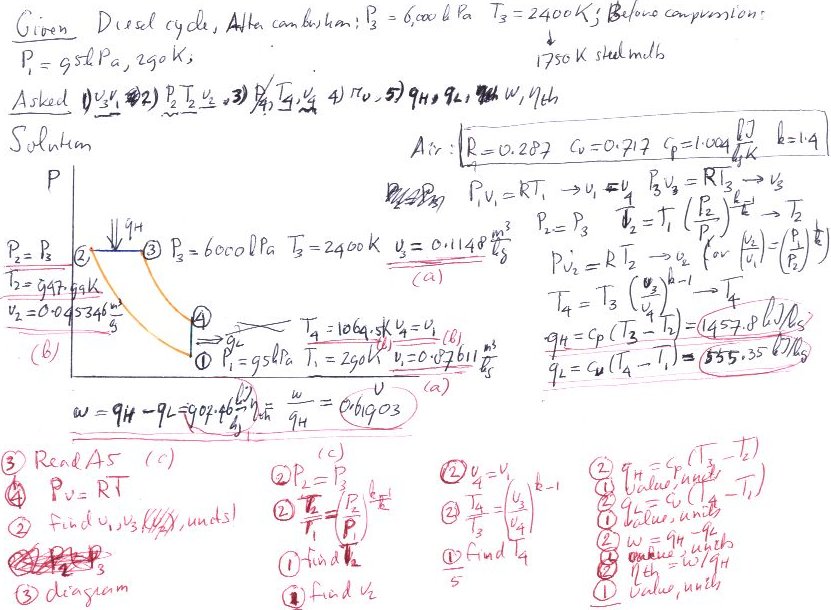 Given Diesel cycle, After combustion: P3 = 6,000 kPa T3 = 2400K; Before compression:
P1 = 95kPa, 290K;
1750 K steel melts
Asked 1) v3 v1 2) P2 T2 v2, 3) P4, T4, v4 4) rv, 5) qH, qL, w, ηth
Solution
Air: R = 0.287 cv = 0.717 cp = 1.004 kJ/kgK k = 1.4
P
P1v1 = RT1 → v1 = v4 P3v3 = RT3 → v3
P2 = P3 T2 = T1 (P2/P1)^(k-1/k) → T2
Pv2 = RT2 → v2 (or (v2/v1) = (P1/P2)^(1/k))
T4 = T3 (v3/v4)^(k-1) → T4
qH = cp (T3 − T2) = 1457.8 kJ/kg
qL = cv (T4 − T1) = 555.35 kJ/kg
qH
P2 = P3
② ③ P3 = 6000 kPa T3 = 2400K v3 = 0.1148 m3/kg
(a)
T2 = 947.99K
v2 = 0.045346 m3/kg
(b)
④
qL T4 = 1064.5K v4 = v1 (b)
① P1 = 95kPa T1 = 290K v1 = 0.87611 m3/kg
(a)
v
w = qH − qL = 907.46 kJ/kg ηth = w/qH = 0.61903
(c)
③ Read A5 (c)
④ Pv = RT
② find v1, v3, units!
P2 = P3
③ diagram
② P2 = P3
② T2/T1 = (P2/P1)^(k-1/k)
① find T2
① find v2
② v4 = v1
② T4/T3 = (v3/v4)^(k-1)
① find T4
5
② qH = cp (T3 − T2)
① value, units
② qL = cv (T4 − T1)
① value, units
② w = qH − qL
① value, units
② ηth = w/qH
① value, units